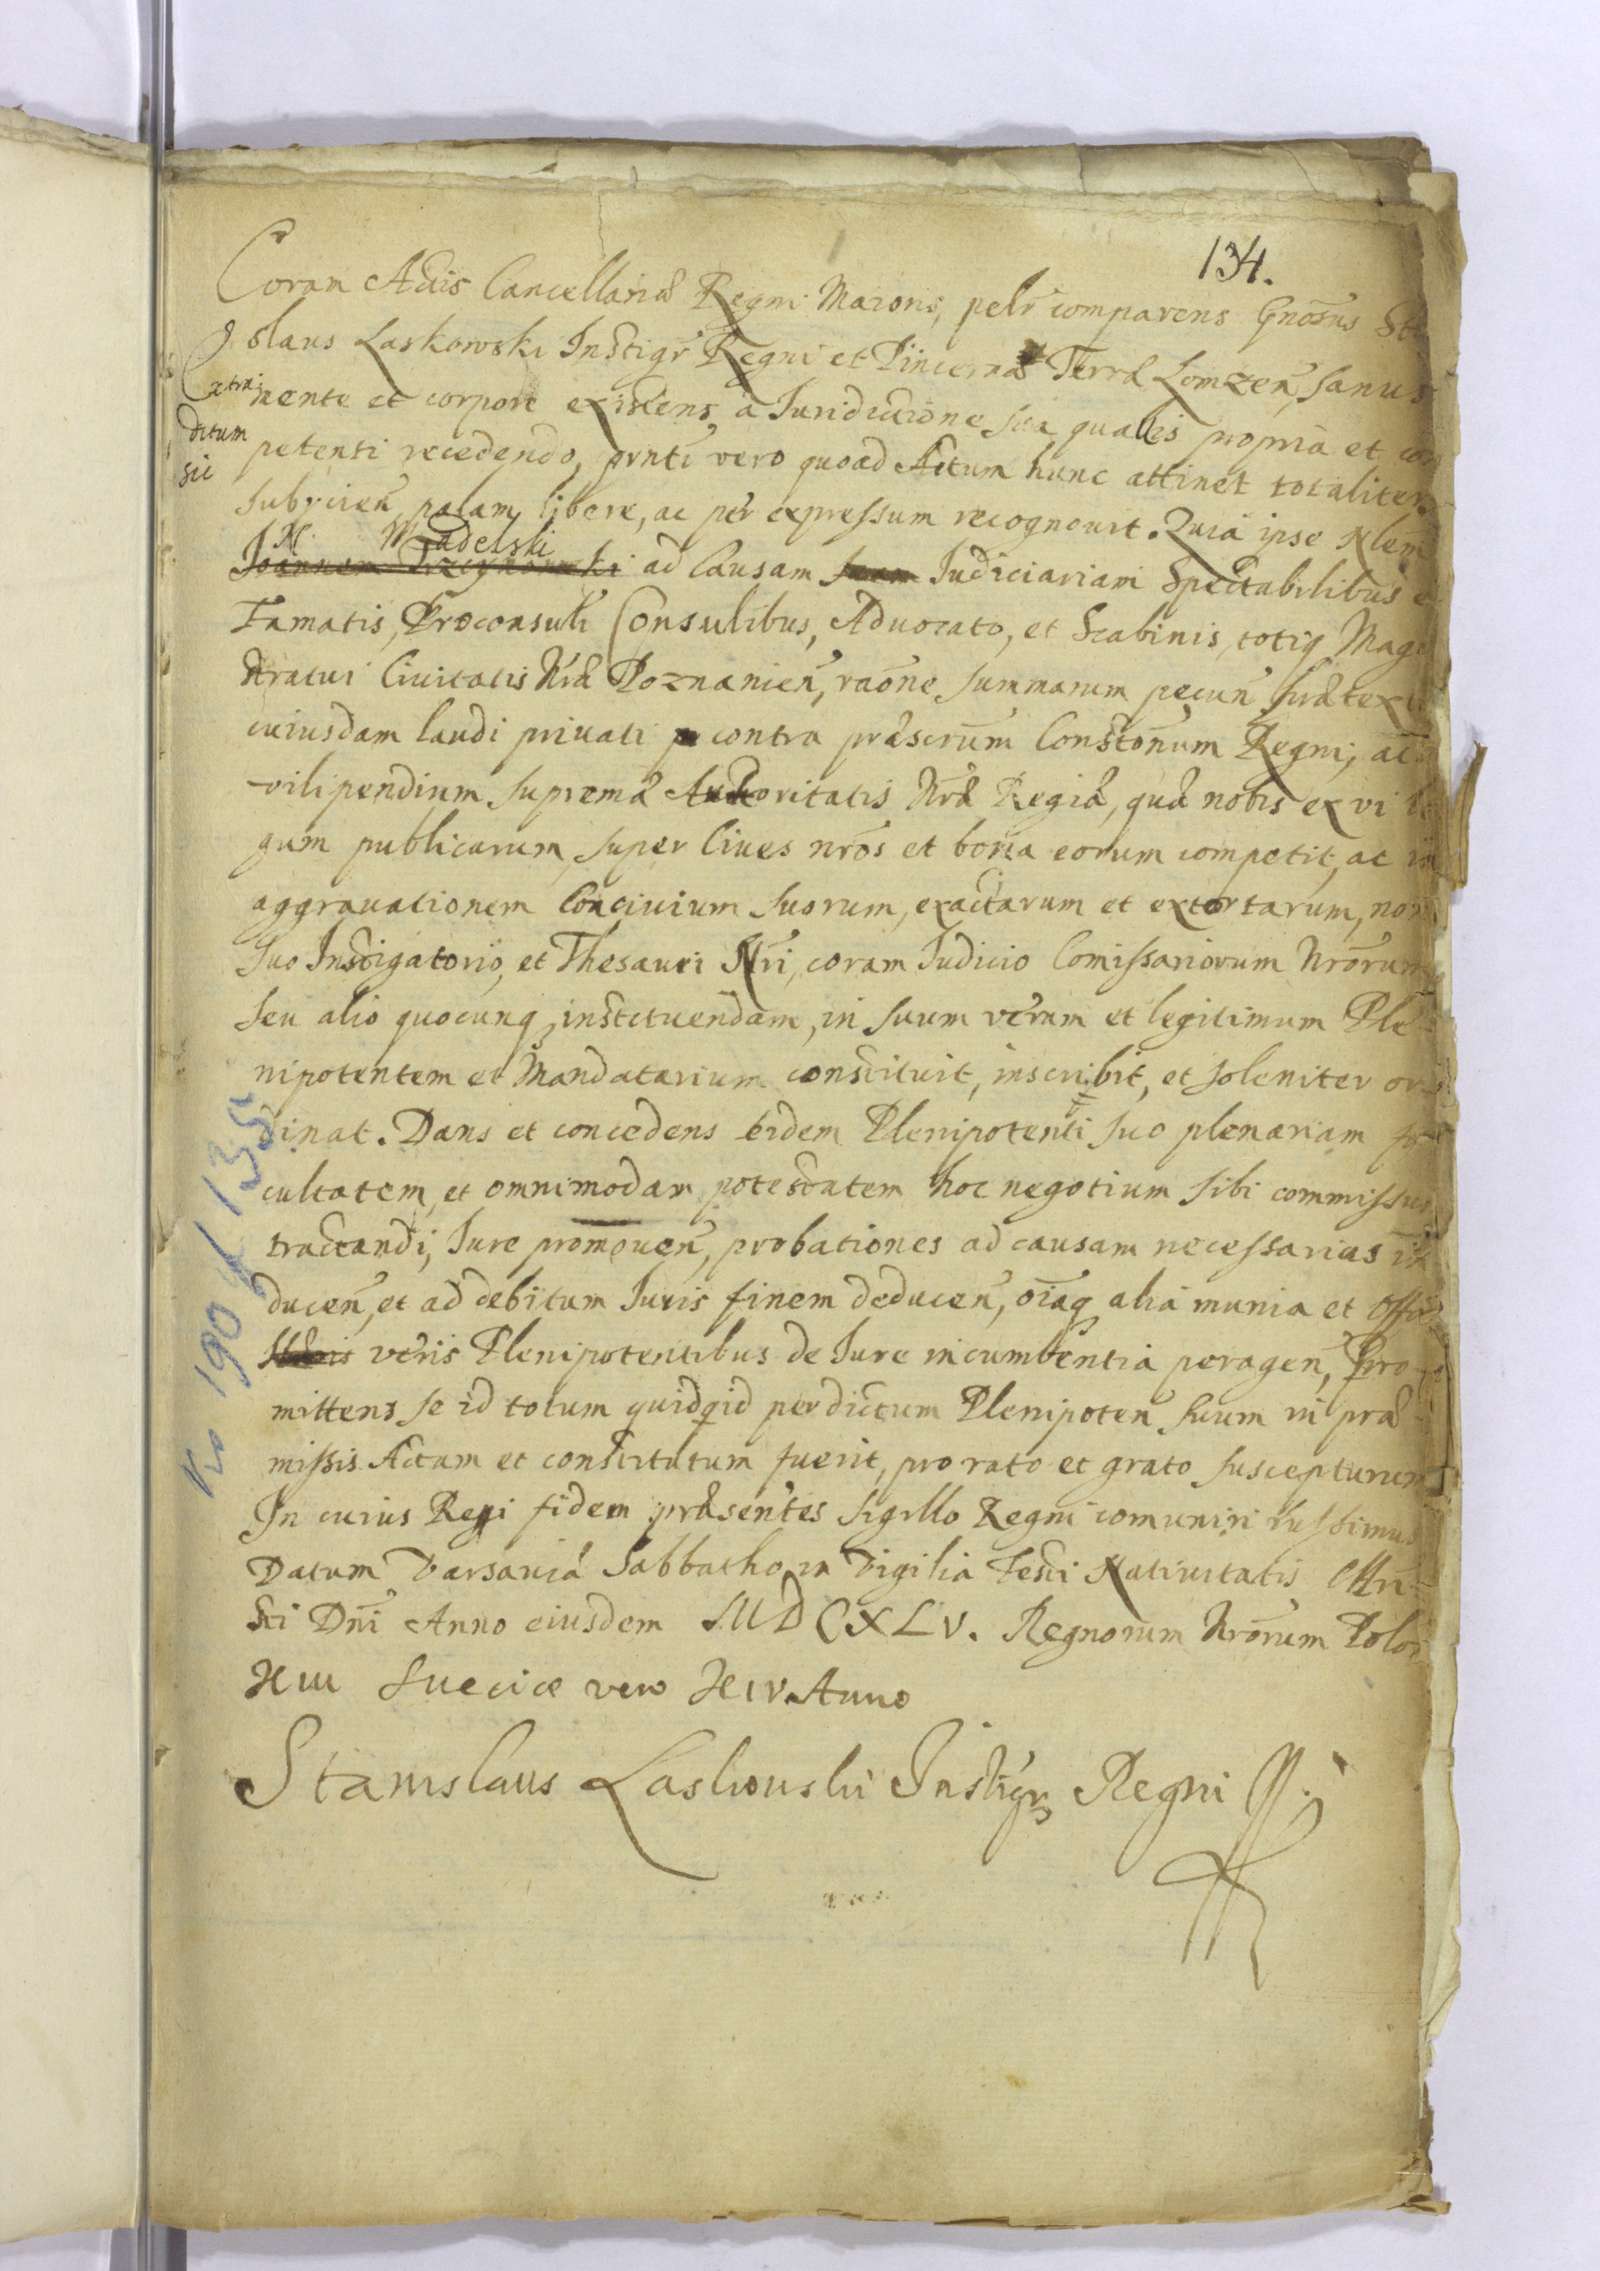 134.
Coram Actis Cancellariæ Regni Maioris, pelr comparens Gnosus St
slaus Laskowski Instigr Regni et Pincerna Terræ Lomzen, sanus
Extra
ditum
sic
mente et corpore existens, a Iurisdictione sua qualis propria et com
petenti recedendo, prnti vero quoad Actum hunc attinet totaliter
subycien, palam, libere, ac per expressum recognouit. Quia ipse
N. Madelski
Joannem ad Causam suam Iudiciariam Spectabilibus e
Famatis, Proconsuli Consulibus, Aduocato, et Scabinis, totiq Magi
stratui Ciuitatis Nræ Poznanien, raone summarum pecun prætextu
cuiusdam laudi priuati contra præscrum Constonum Regni, ac
vilipendium supremæ Authoritatis Nræ Regiæ, quæ nobis ex vi le
gum publicarum, super Ciues nros et bona eorum competit, ac in
aggrauationem Conciuium suorum, exactarum et extortarum, non
suo Instigatorio, et Thesauri Nri, coram Iudicio Comissariorum Nrorum
seu alio quocunq, instituendam, in suum verum et legitimum Ple-
nipotentem et Mandatarium constituit, inscribit, et soleniter or-
dinat. Dans et concedens eidem Plenipotenti suo plenariam fa
cultatem, et omnimodam potestatem hoc negotium sibi commissum
tractandi, Iure promouen, probationes ad causam necessarias in
ducen, et ad debitum Iuris finem deducen, oiaq alia munia et offi
veris Plenipotentibus de Iure incumbentia peragen, Pro-
mittens se id totum quidqid per dictum Plenipoten suum in præ
missis Actum et constitutum fuerit, pro rato et grato suscepturum
In cuius Regi fidem præsentes sigillo Regni comuniri iussimus
Datum Varsauiæ Sabbatho in Vigilia Festi Natiuitatis Chri-
sti Dni Anno eiusdem MDCXLV. Regnorum Nrorum Polon
XIII Sueciæ vero XIV Anno
Stanislaus Laskowski Instigr Regni